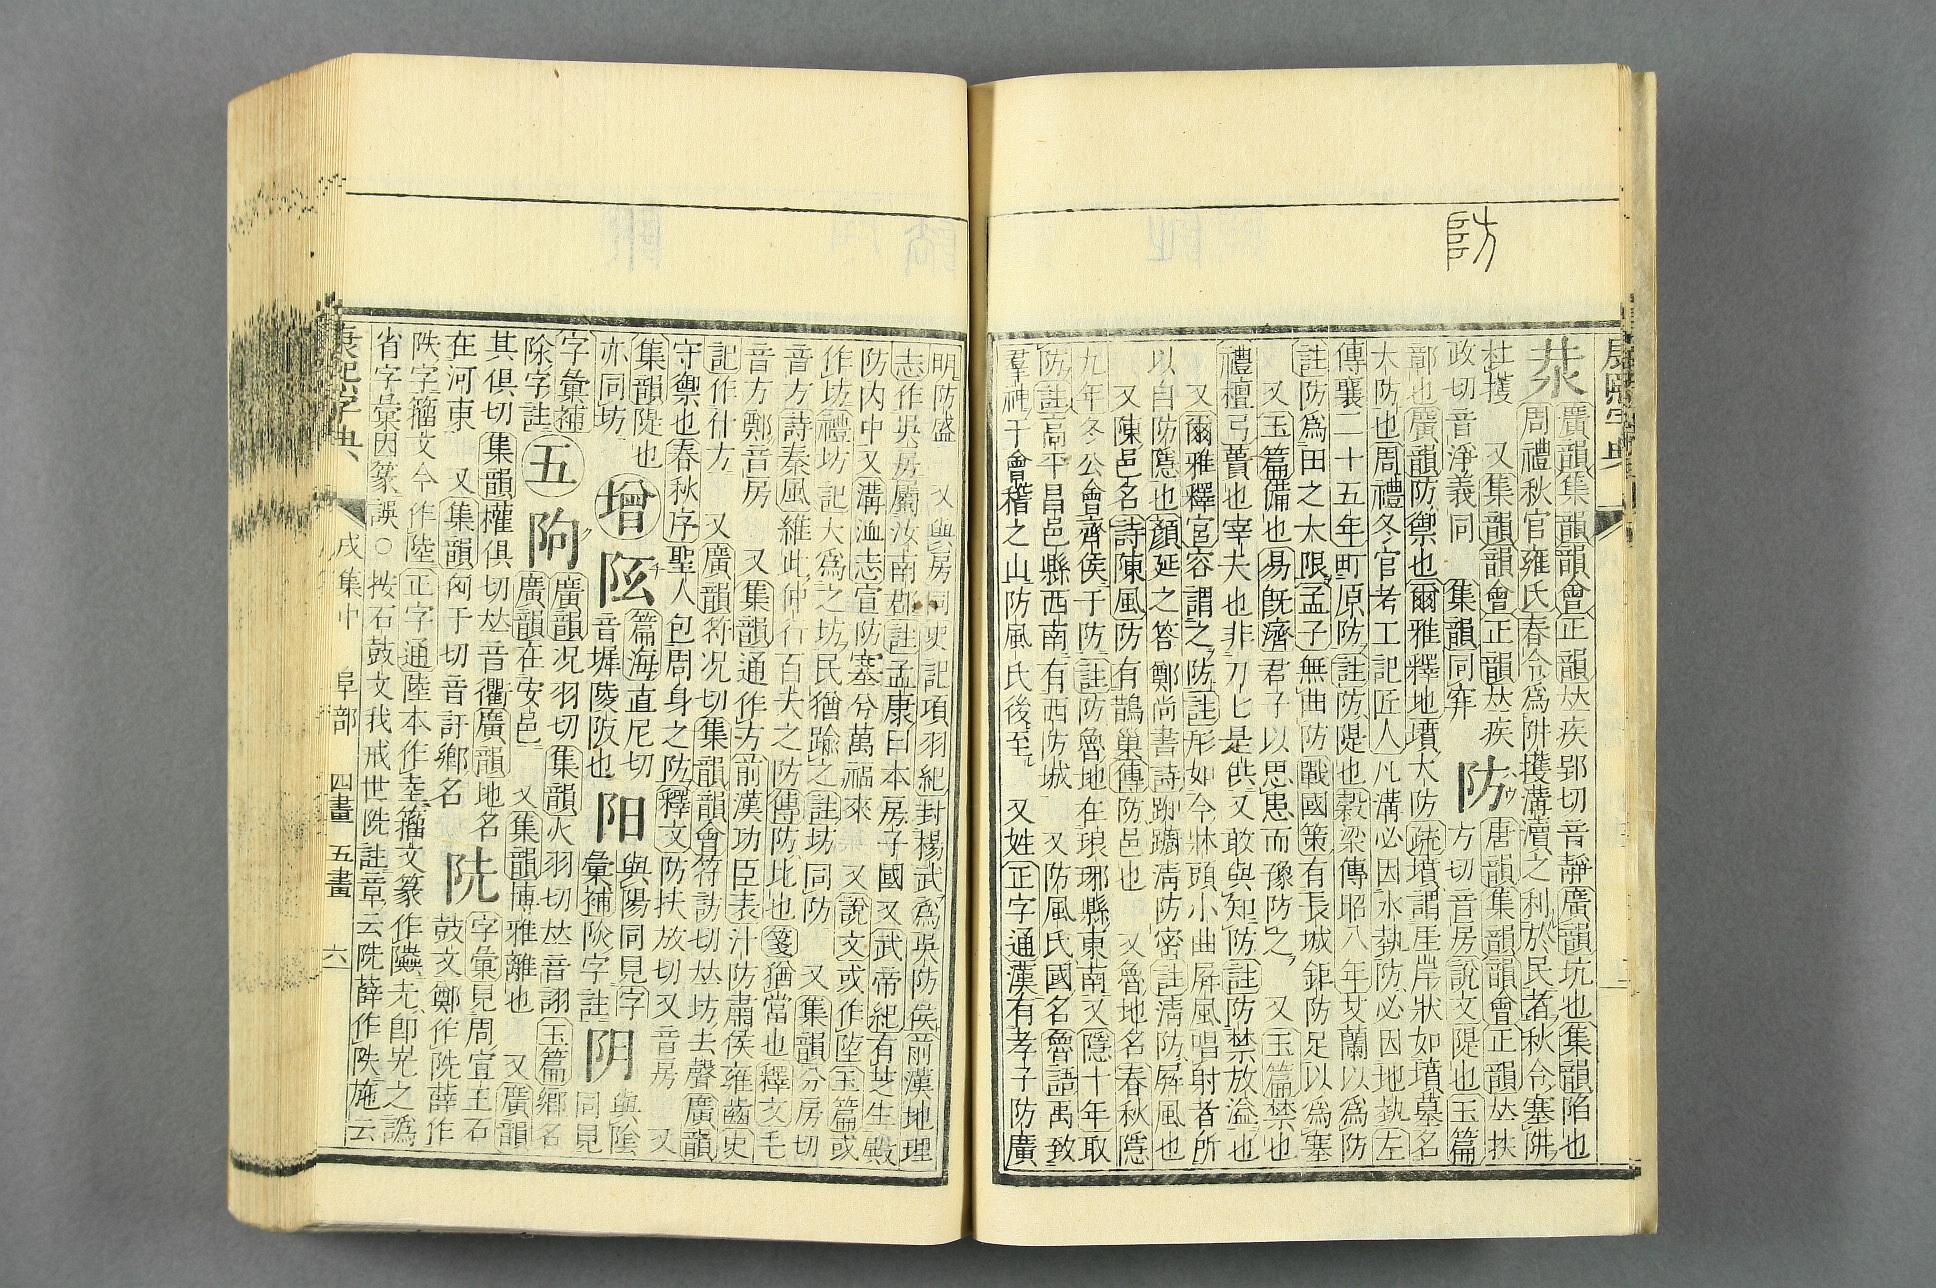 防
康熙字典
廣韻集韻韻會正韻𠀤疾郢切音靜廣韻坑也集韻陷也
周禮秋官雍氏春令爲阱擭溝瀆之利於民者秋令塞阱
杜擭 又集韻韻會正韻𠀤疾
政切音淨義同 集韻同穽
防
唐韻集韻韻會正韻𠀤扶
方切音房說文隄也玉篇
鄣也廣韻防禦也爾雅釋地墳大防疏墳謂厓岸狀如墳墓名
大防也周禮冬官考工記匠人凡溝必因水埶防必因地埶左
傳襄二十五年町原防註防隄也穀梁傳昭八年艾蘭以爲防
註防爲田之大限孟子無曲防戰國策有長城鉅防足以爲塞
又玉篇備也易旣濟君子以思患而豫防之 又玉篇禁也
禮檀弓蕢也宰夫也非刀匕是供又敢與知防註防禁放溢也
又爾雅釋宮容謂之防註形如今牀頭小曲屏風唱射者所
以自防隱也顏延之答鄭尚書詩踟躕淸防密註淸防屏風也
又陳邑名詩陳風防有鵲巢傳防邑也 又魯地名春秋隱
九年冬公會齊侯于防註防魯地在琅邪縣東南又隱十年取
防註高平昌邑縣西南有西防城 又防風氏國名魯語禹致
羣神于會稽之山防風氏後至 又姓正字通漢有孝子防廣
明防盛 又與房同史記項羽紀封楊武爲吳防侯前漢地理
志作吳房屬汝南郡註孟康曰本房子國又武帝紀有芝生殿
防內中又溝洫志宣防塞兮萬福來 又說文或作埅玉篇或
作坊禮坊記大爲之坊民猶踰之註坊同防 又集韻分房切
音方詩秦風維此仲行百夫之防傳防比也箋猶當也釋文毛
音方鄭音房 又集韻通作方前漢功臣表汁防肅侯雍齒史
記作什方 又廣韻符況切集韻韻會符訪切𠀤坊去聲廣韻
守禦也春秋序聖人包周身之防釋文防扶放切又音房 又
集韻隄也
亦同坊
增
篇海直尼切
音墀陵阪也
阳
與陽同見字
彙補陝字註
阴
與陰同見
字彙補
除字註
五
阿
廣韻況羽切集韻火羽切𠀤音詡玉篇鄉名
廣韻在安邑 又集韻博雅離也 又廣韻
其俱切集韻權俱切𠀤音衢廣韻地名
在河東 又集韻匈于切音訏鄉名
阹字籀文今作陸正字通陸本作坴籀文篆
省字彙因篆誤○按石鼓文我戒世阹註章云阹薛作阹施云
字彙見周宣王石
鼓文鄭作阹薛作
康熙字典
戌集中 阜部
四畫 五畫
六